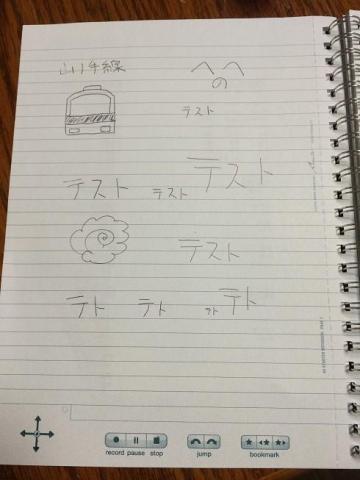 山手線 へへ
の
テスト
テスト テスト テスト
テスト
テト テト テト テト
record pause stop jump bookmark